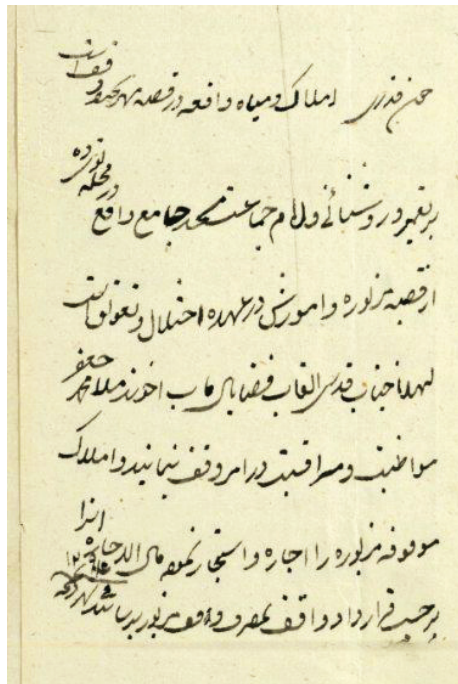 چون قدری املاک و میاه واقعه در قصبه وقف است
بر تعمیر و روشنائی و امام جماعت مسجد جامع واقع در محله نوده
از قصبه مزبوره و امورش در عهده اختلال و تعویق است
لهذا جناب قدسی القاب فضایل مآب آخوند ملا محمد جعفر
مواظبت و مراقبت در امر وقف بنمایند و املاک
موقوفه مزبوره را اجاره و استیجار نموده مال الاجاره
بر حسب قرارداد واقف بمصرف وقف مزبور برسانند